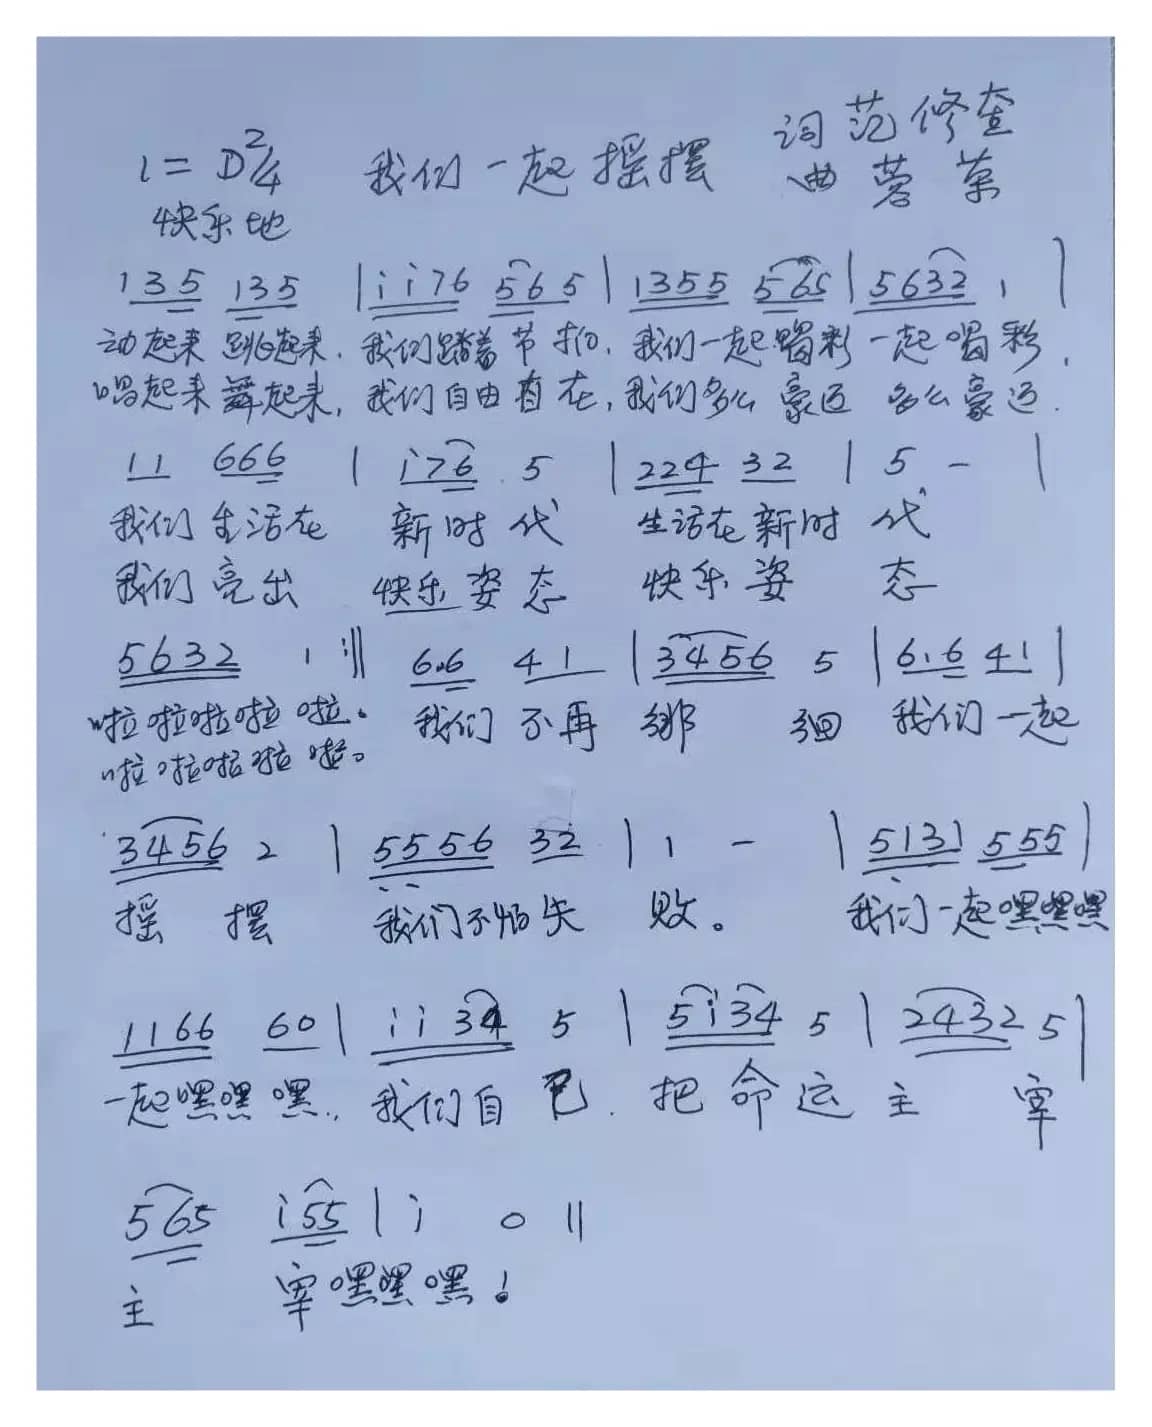 1=D2/4 我们一起摇摆 词 范修奎
快乐地 曲 蓉蓉
135 135 | i i 7 6 565 | 1355 565 | 5632 1 |
动起来 跳起来. 我们踏着节拍, 我们一起喝彩 一起喝彩,
唱起来舞起来, 我们自由自在, 我们多么豪迈 多么豪迈.
11 666 | i76 5 | 224 32 | 5 - |
我们 生活在 新时代 生活在新时代
我们亮出 快乐姿态 快乐姿态
5632 1 :‖ 6.6 41 | 3456 5 | 6.6 41 |
啦啦啦啦啦。 我们不再绑捆 我们一起
啦啦啦啦啦。
3456 2 | 5556 32 | 1 - | 5131 555 |
摇摆 我们不怕失败。 我们一起嘿嘿嘿
1166 60 | i i 34 5 | 5i34 5 | 2432 5 |
一起嘿嘿嘿., 我们自己. 把命运主宰
565 i55 | i 0 ‖
主宰嘿嘿嘿!